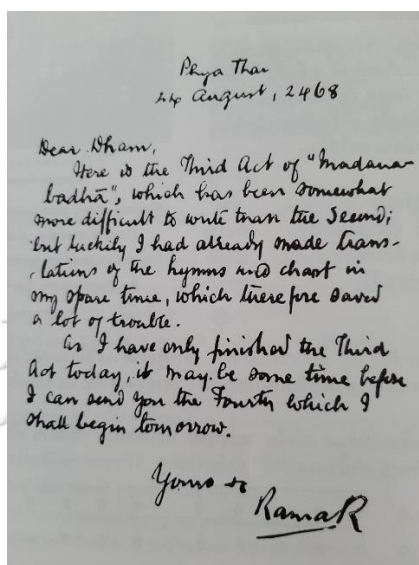 Phya Thai
24 August, 2468
Dear Dham,
Here is the Third Act of "Madana-
badhā", which has been somewhat
more difficult to write than the Second;
but luckily I had already made trans-
-lations of the hymns and chant in
my spare time, which therefore saved
a lot of trouble.
As I have only finished the Third
Act today, it may be some time before
I can send you the Fourth which I
shall begin tomorrow.
Yours
Rama R